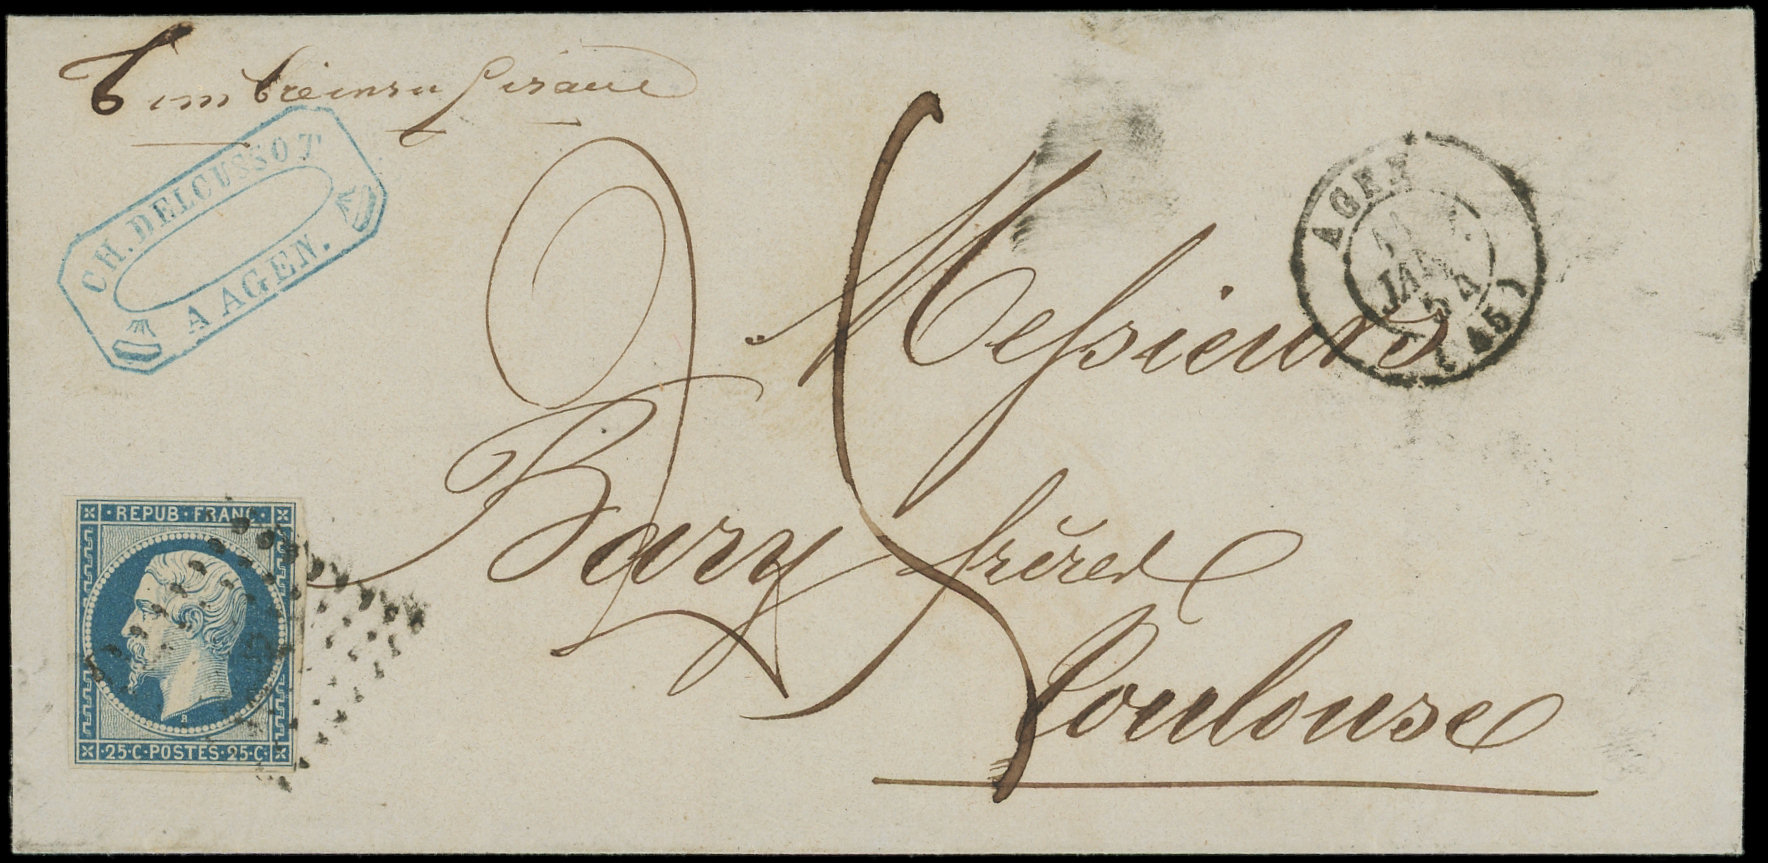 Timbre insuffisant
CH. DELCUSSOT
A AGEN.
25
AGEN
JAN.
54
(45)
Messieurs
Bary frères
Toulouse
REPUB·FRANC·
B
·25·C·POSTES·25·C·